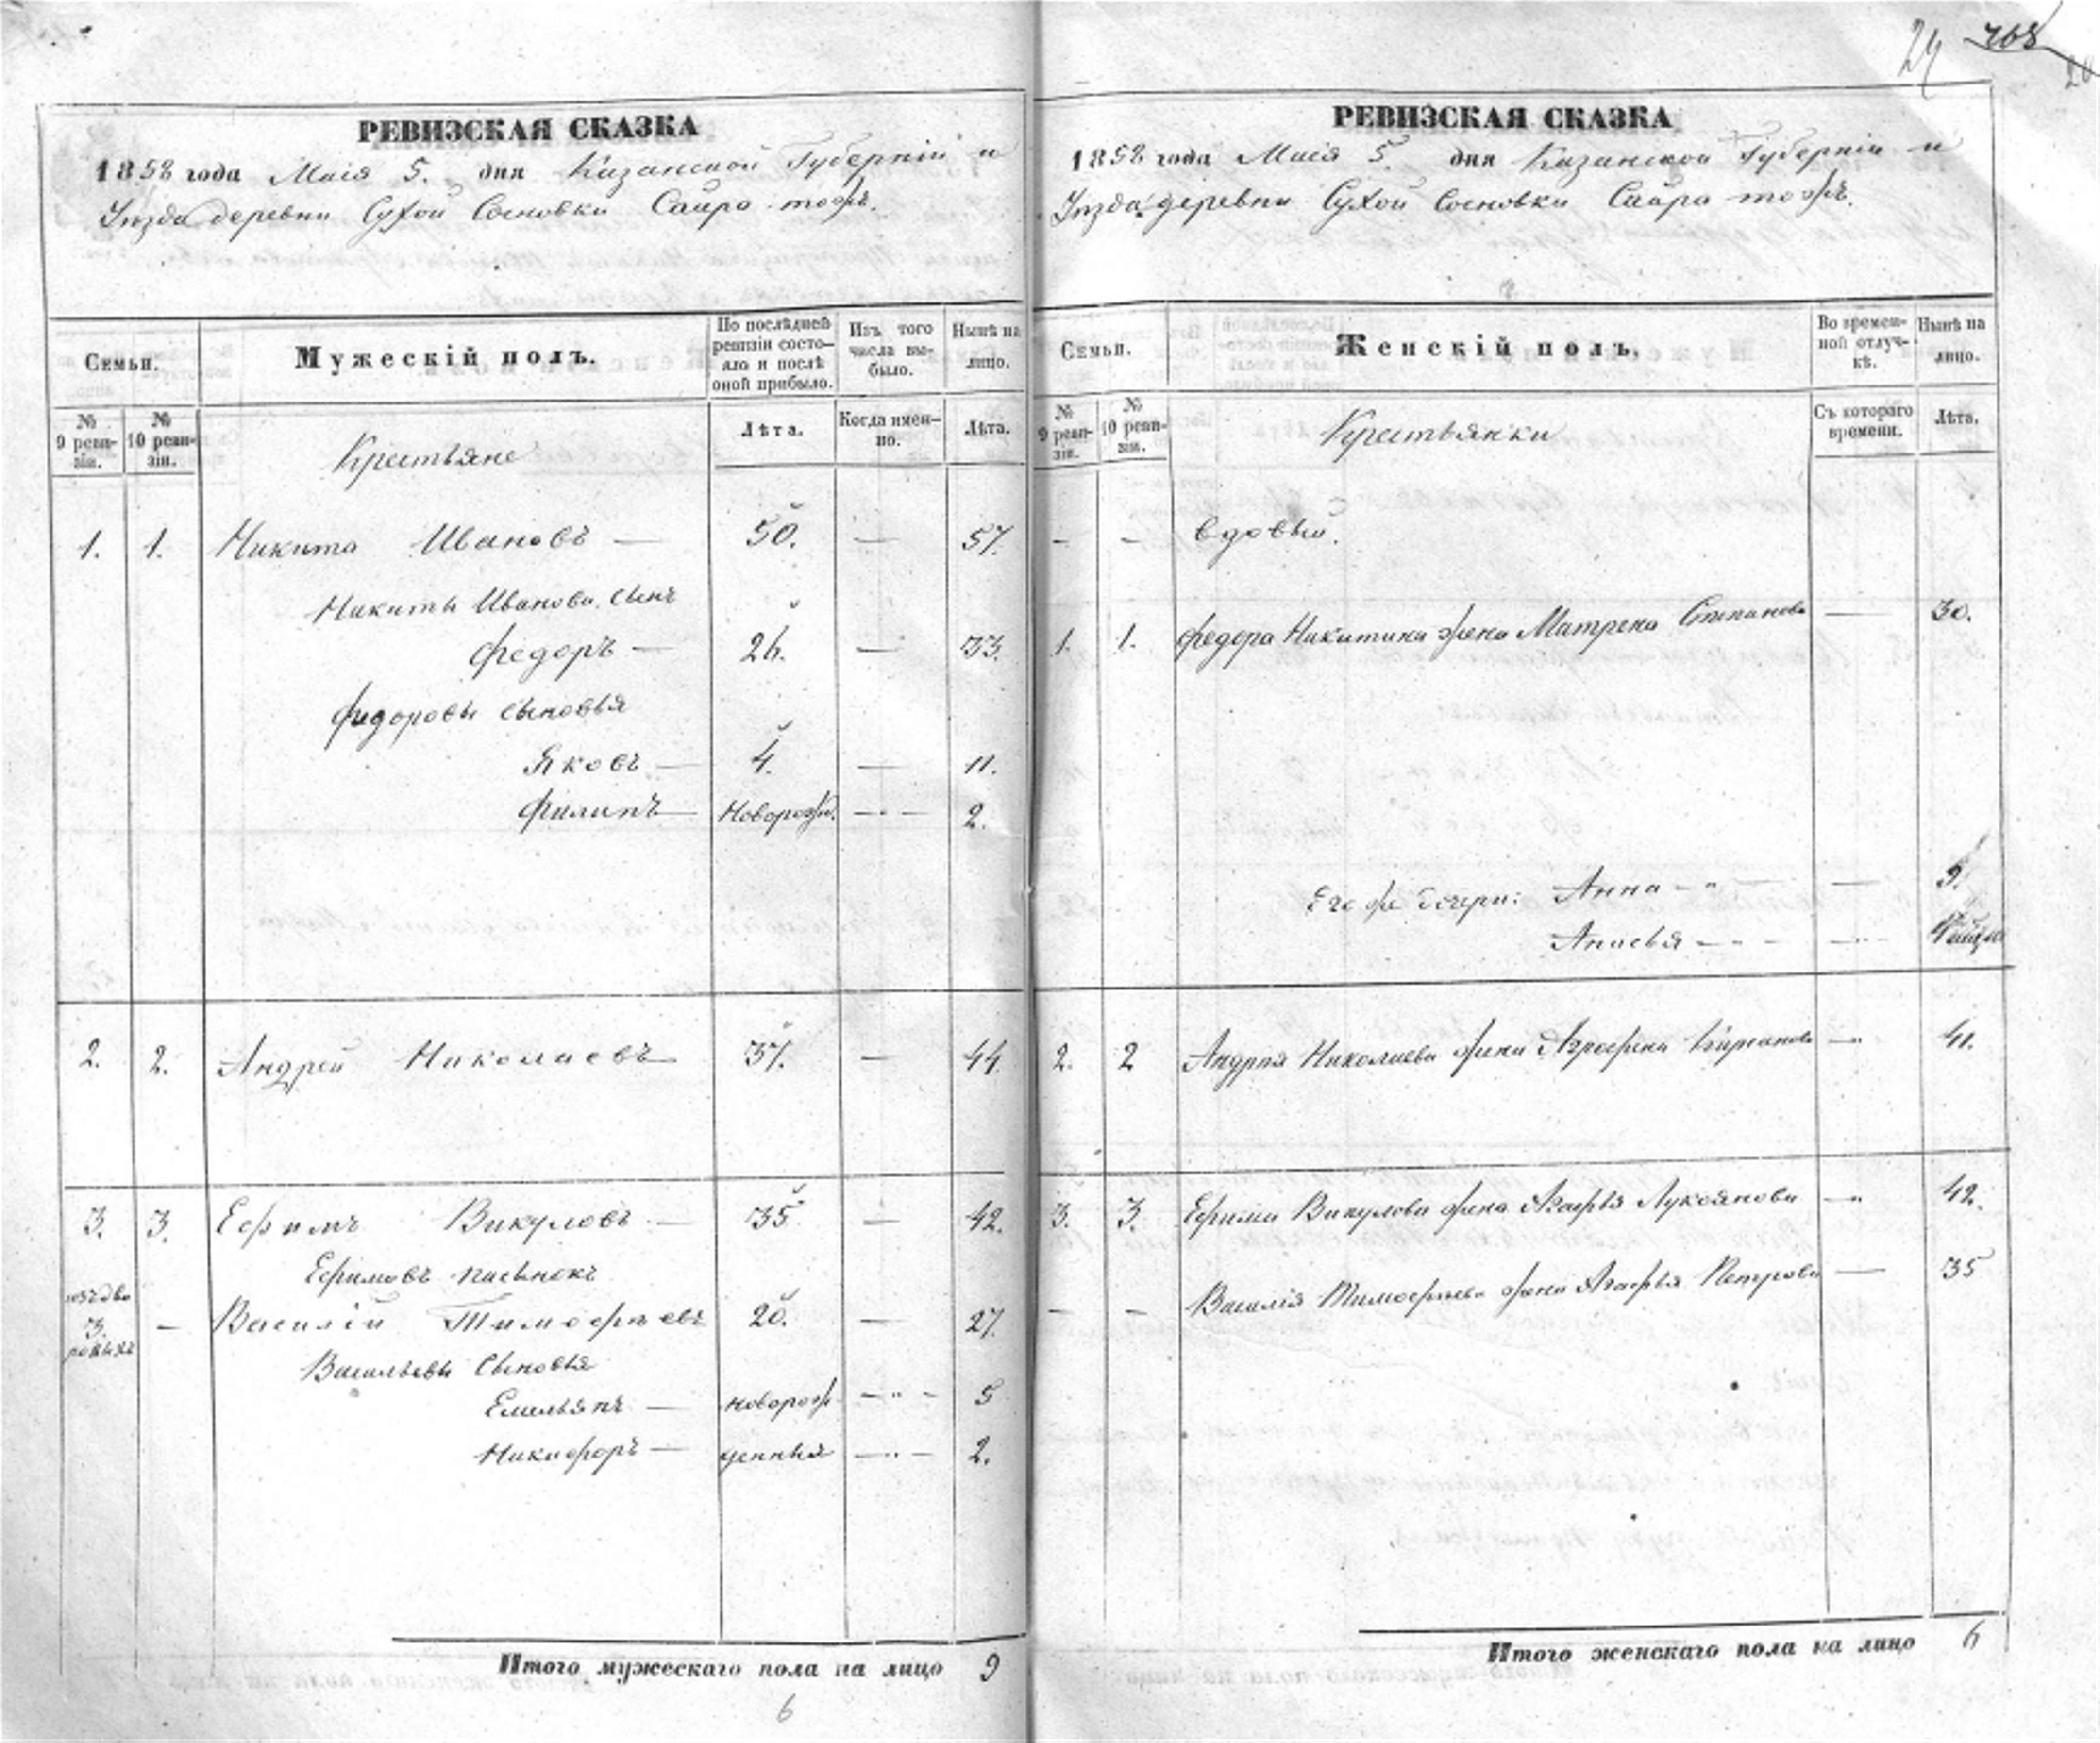 24 768
РЕВИЗСКАЯ СКАЗКА
1858 года Маія 5. дня Казанской Губерніи и
Уѣзда деревни Сухой Сосновки Саира тожъ.
Семьи.
Мужескій полъ.
По послѣдней ревизіи состояло и послѣ оной прибыло.
Изъ того числа выбыло.
Нынѣ на лицо.
№ 9 ревизіи.
№ 10 ревизіи.
Крестьяне
Лѣта.
Когда именно.
Лѣта.
1. 1. Никита Ивановъ — 50. — 57.
Никиты Иванова сынъ
Федоръ — 26. — 33.
Федоровы сыновья
Яковъ — 4. — 11.
Филипъ — Новорожд. — 2.
2. 2. Андрей Николаевъ — 37. — 44.
3. 3. Ефимъ Викуловъ — 35 — 42.
Ефимовъ пасынокъ
3. — Василій Тимофѣевъ 20. — 27.
Васильевы сыновья
Емельянъ — новорож — 5
Никифоръ — денныя — 2.
Итого мужескаго пола на лицо 9
6
РЕВИЗСКАЯ СКАЗКА
1858 года Маія 5. дня Казанской Губерніи и
Уѣзда деревни Сухой Сосновки Саира тожъ.
Семьи.
Женскій полъ.
Во временной отлучкѣ.
Нынѣ на лицо.
№ 9 ревизіи.
№ 10 ревизіи.
Крестьянки
Съ котораго времени.
Лѣта.
- - вдовый.
1. 1. Федора Никитина жена Матрена Степанова — 30.
Его же дочери: Анна — 9.
2. 2 Андрея Николаева жена — 41.
3. 3. Ефима Викулова жена Агафья Лукоянова — 42.
- - Василія Тимофѣева жена Агафья Петрова — 35
Итого женскаго пола на лицо 6